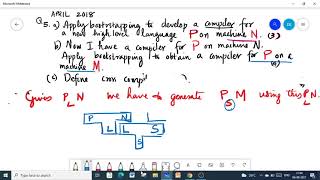 Microsoft Whiteboard
APRIL 2018
Q5. a) Apply bootstrapping to develop a compiler for
a new high level language P on machine N. (3)
b) Now I have a compiler for P on machine N.
Apply bootstrapping to obtain a compiler for P on a
machine M.
(c) Define cross comp
Given P L N we have to generate P S M using this P L N
P N
L L S
S